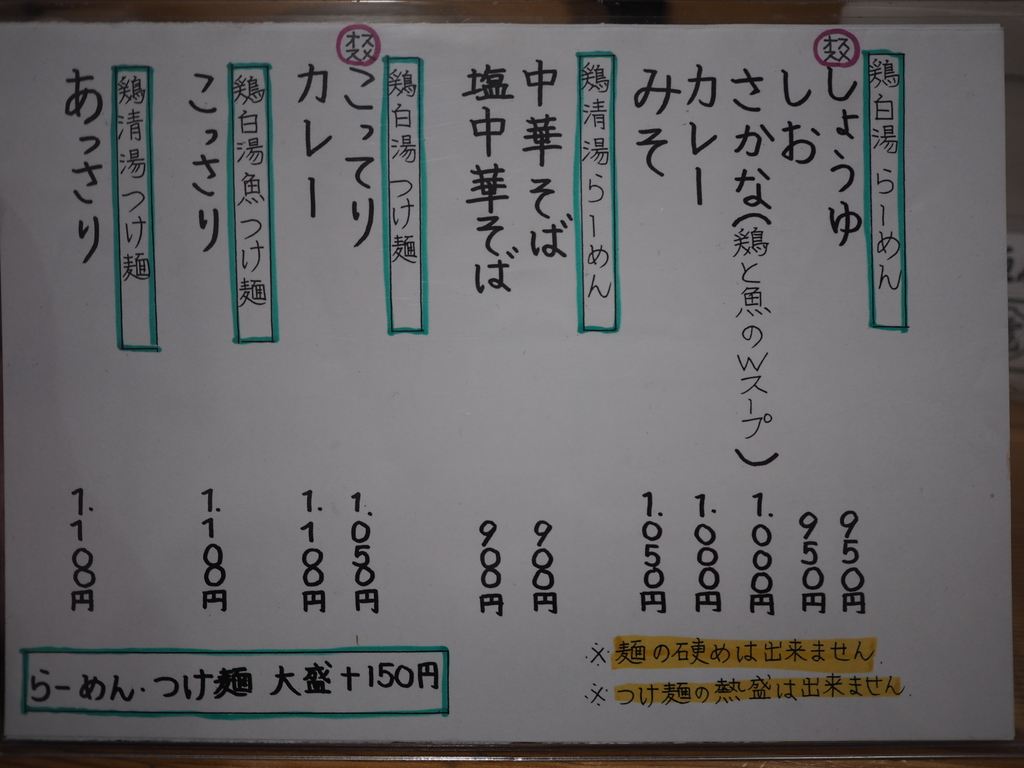 鶏白湯らーめん
オススメ
しょうゆ 950円
しお 950円
さかな(鶏と魚のWスープ) 1.000円
カレー 1.000円
みそ 1.050円
鶏清湯らーめん
中華そば 900円
塩中華そば 900円
鶏白湯つけ麺
オススメ
こってり 1.050円
カレー 1.100円
鶏白湯魚つけ麺
こっさり 1.100円
鶏清湯つけ麺
あっさり 1.100円
らーめん・つけ麺 大盛+150円
※麺の硬めは出来ません
※つけ麺の熱盛は出来ません